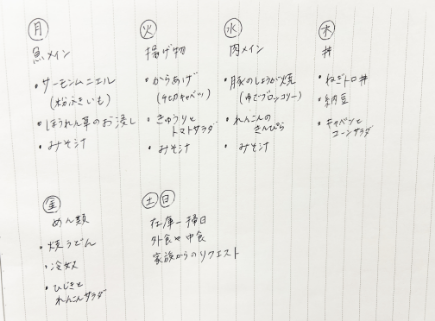 月
魚メイン
・サーモンムニエル
(粉ふきいも)
・ほうれん草のお浸し
・みそ汁
火
揚げ物
・からあげ
(千切りキャベツ)
・きゅうりと
トマトサラダ
・みそ汁
水
肉メイン
・豚のしょうが焼
(ゆでブロッコリー)
・れんこんの
きんぴら
・みそ汁
木
丼
・ねぎトロ丼
・納豆
・キャベツと
コーンサラダ
金
めん類
・焼うどん
・冷奴
・ひじきと
れんこんサラダ
土日
在庫一掃日
外食や中食
家族からのリクエスト